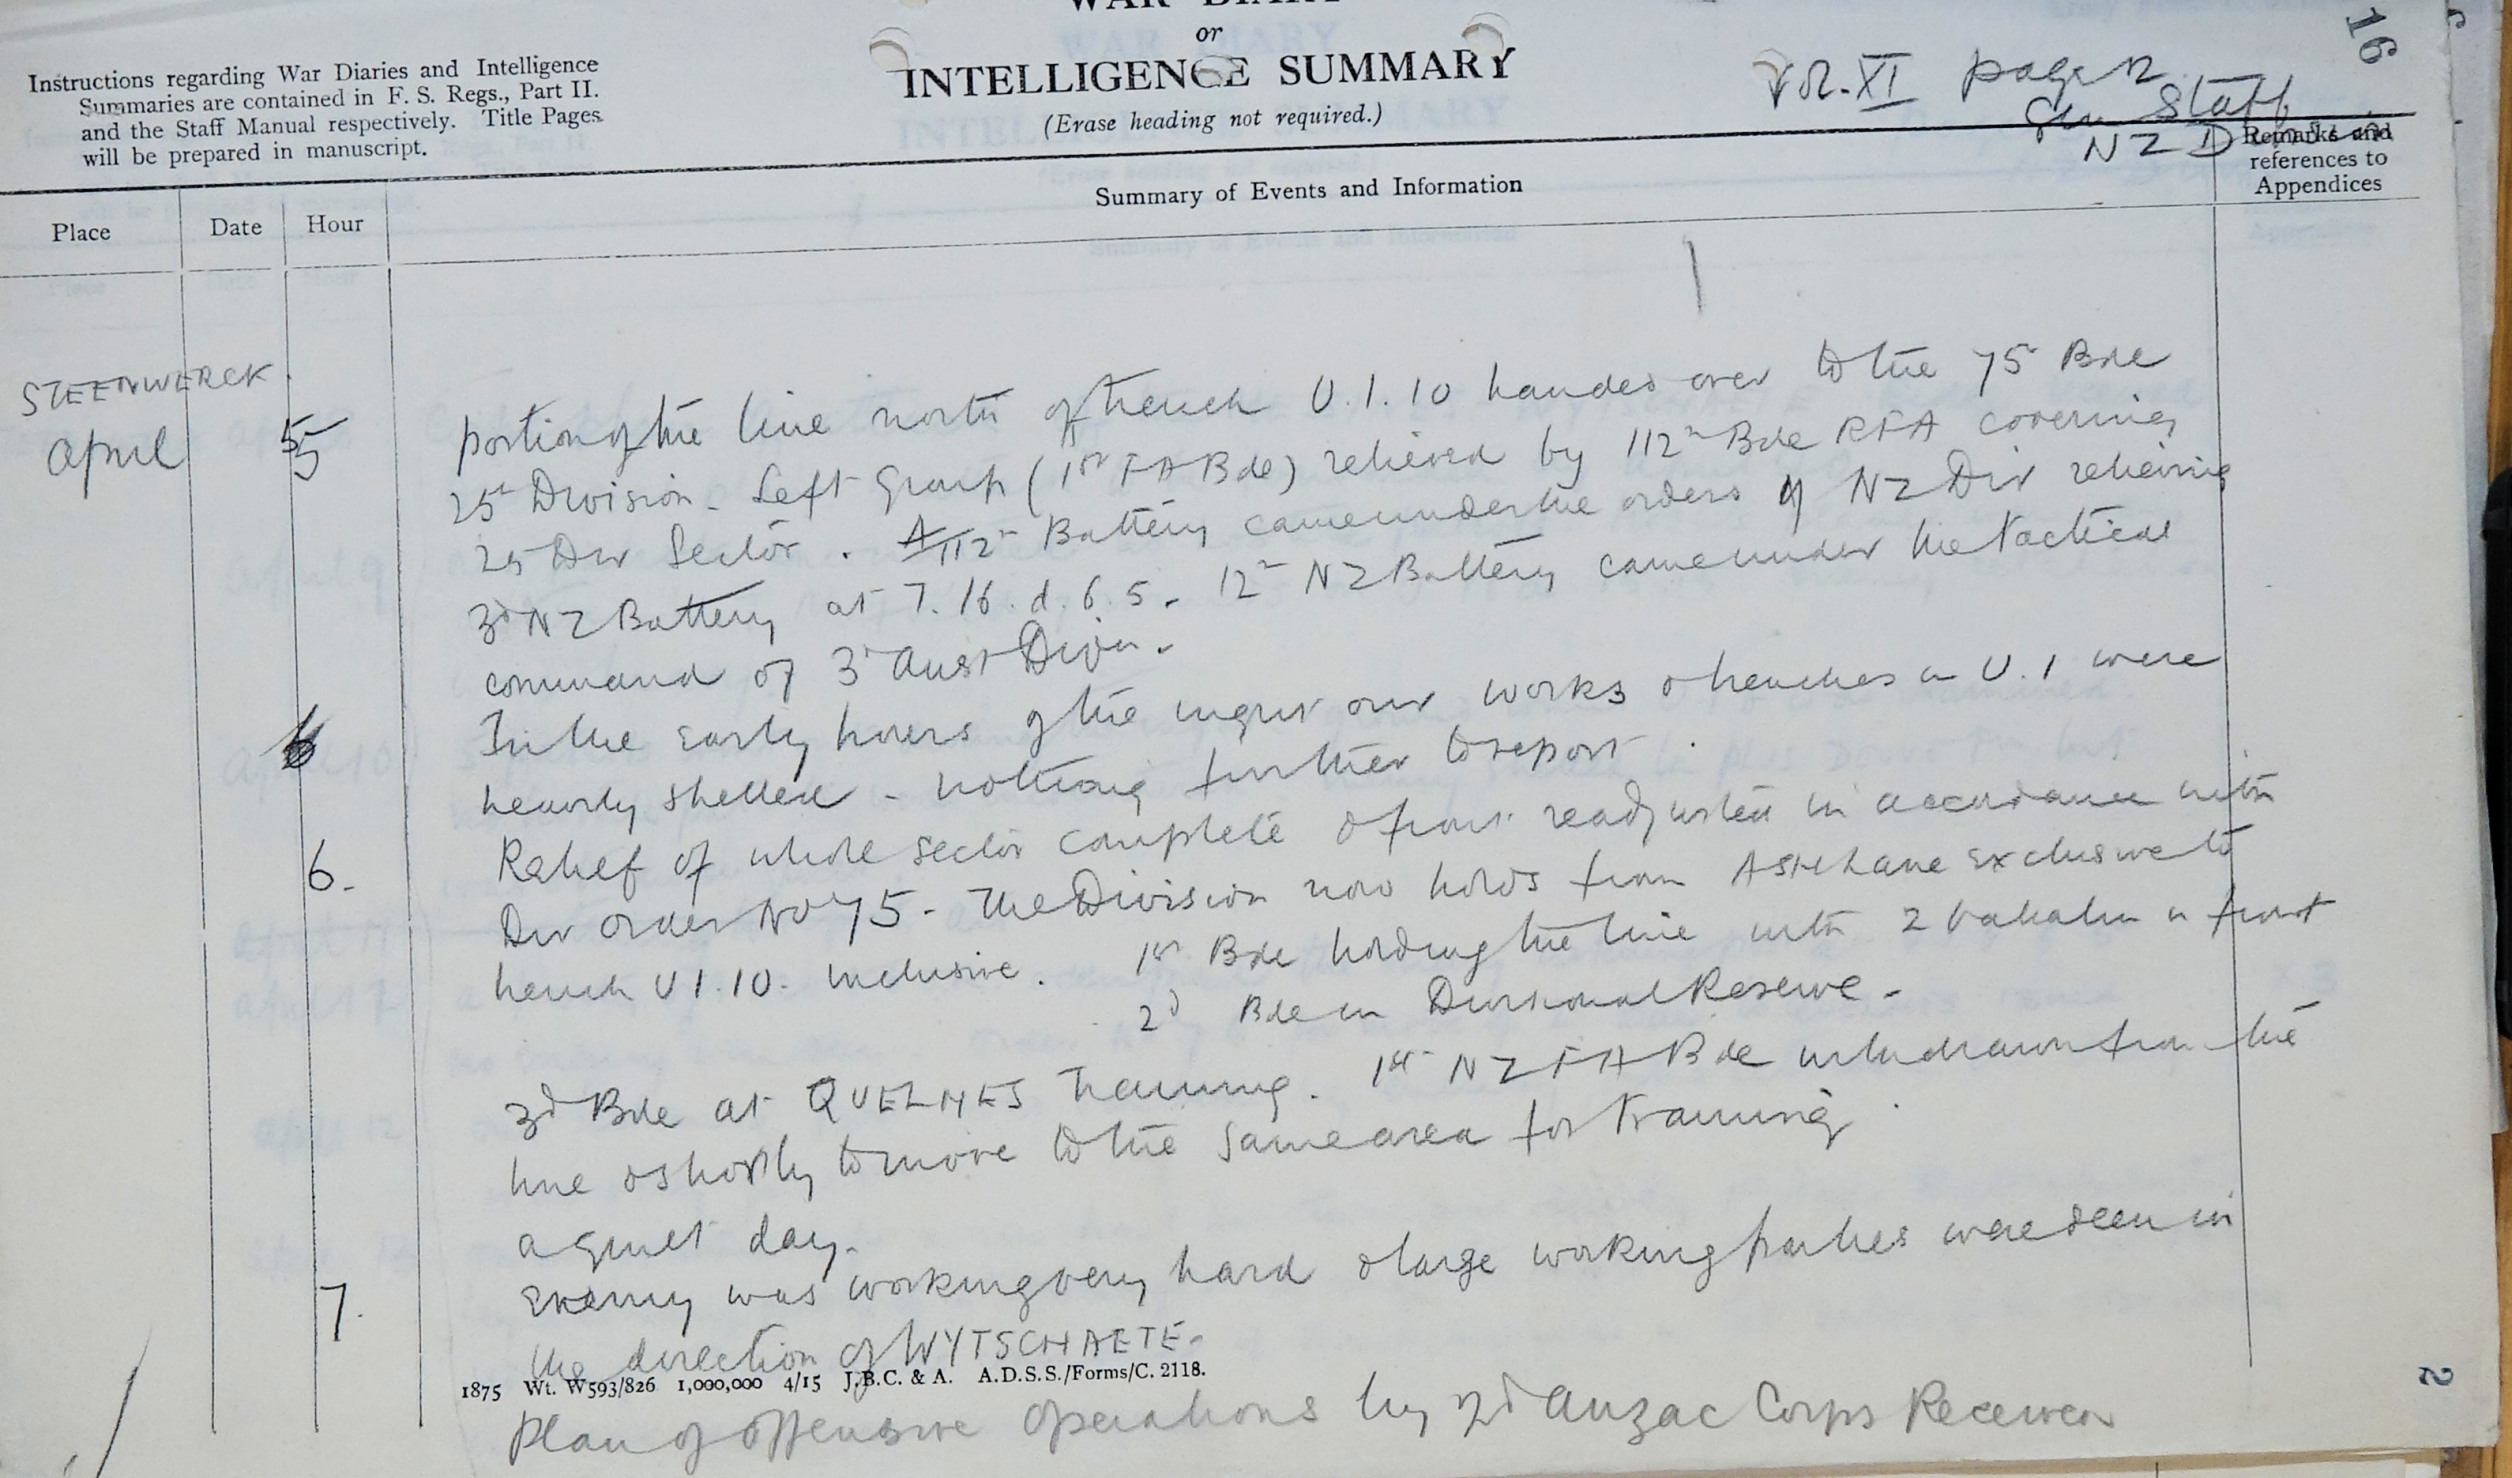 WAR DIARY
or
INTELLIGENCE SUMMARY
(Erase heading not required.)
Instructions regarding War Diaries and Intelligence
Summaries are contained in F. S. Regs., Part II.
and the Staff Manual respectively. Title Pages
will be prepared in manuscript.
Vol. XI page 2
Gen Staff
NZ Division
16
Place
Date
Hour
Summary of Events and Information
Remarks and
references to
Appendices
STEENWERCK
April
5
portion of the line north of trench U.1.10 handed over to the 75 Bde
25th Division. Left Group (1st FA Bde) relieved by 112th Bde RFA covering
25 Div Sector. A/112th Battery came under the orders of NZ Div relieving
3d NZ Battery at T.16.d.6.5. 12th NZ Battery came under the tactical
command of 3d Aust Divn.
In the early hours of the night our works & trenches in U.1 were
heavily shelled - nothing further to report.
6.
Relief of whole sector complete & front readjusted in accordance with
Div order No 75 - The Division now holds from ASH Lane exclusive to
trench U1.10. inclusive. 1st Bde holding the line with 2 battalion in front
2d Bde in Divisional Reserve -
3d Bde at QUELMES Training. 1st NZFA Bde withdrawn from the
line & shortly to move to the same area for training.
a quiet day.
7.
Enemy was working very hard & large working parties were seen in
the direction of WYTSCHAETE -
1875 Wt. W593/826 1,000,000 4/15 J.B.C. & A. A.D.S.S./Forms/C. 2118.
Plan of offensive operations by 2d Anzac Corps Received
2